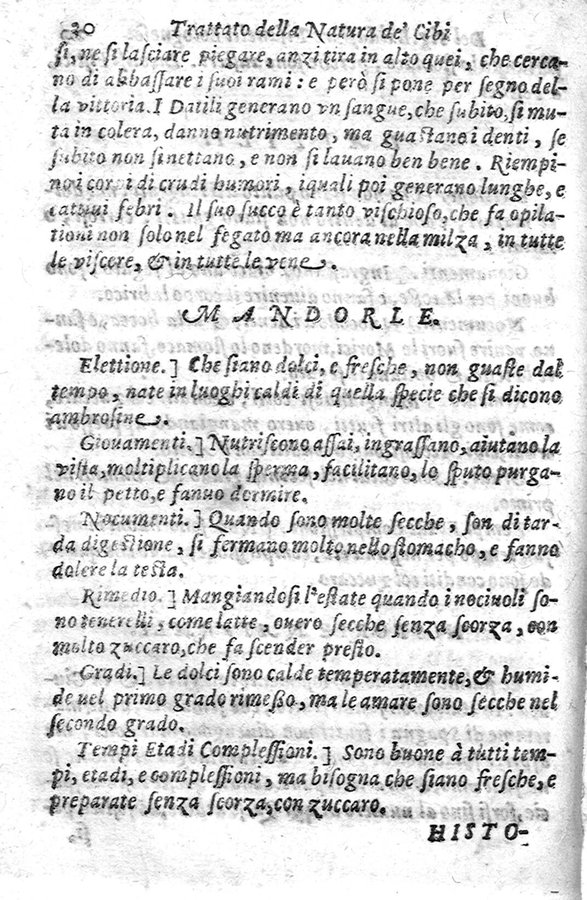 30 Trattato della Natura de' Cibi
si, ne si lasciare piegare, anzi tira in alto quei, che cerca-
no di abbassare i suoi rami: e però si pone per segno del-
la vittoria. I Datili generano vn sangue, che subito, si mu-
ta in colera, danno nutrimento, ma guastano i denti, se
subito non si nettano, e non si lauano ben bene. Riempi-
no i corpi di crudi humori, i quali poi generano lunghe, e
cattiui febri. Il suo succo è tanto vischioso, che fa opila-
tioni non solo nel fegato ma ancora nella milza, in tutte
le viscere, & in tutte le vene.
MANDORLE.
Elettione.] Che siano dolci, e fresche, non guaste dal
tempo, nate in luoghi caldi di quella specie che si dicono
ambrosine.
Giouamenti.] Nutriscono assai, ingrassano, aiutano la
vista, moltiplicano la sperma, facilitano, lo sputo purga-
no il petto, e fanno dormire.
Nocumenti.] Quando sono molte secche, son di tar-
da digestione, si fermano molto nello stomacho, e fanno
dolere la testa.
Rimedio.] Mangiandosi l'estate quando i nociuoli so-
no tenerelli, come latte, ouero secche senza scorza, con
molto zuccaro, che fa scender presto.
Gradi.] Le dolci sono calde temperatamente, & humi-
de nel primo grado rimesso, ma le amare sono secche nel
secondo grado.
Tempi Etadi Complessioni.] Sono buone à tutti tem-
pi, etadi, e complessioni, ma bisogna che siano fresche, e
preparate senza scorza, con zuccaro.
HISTO-